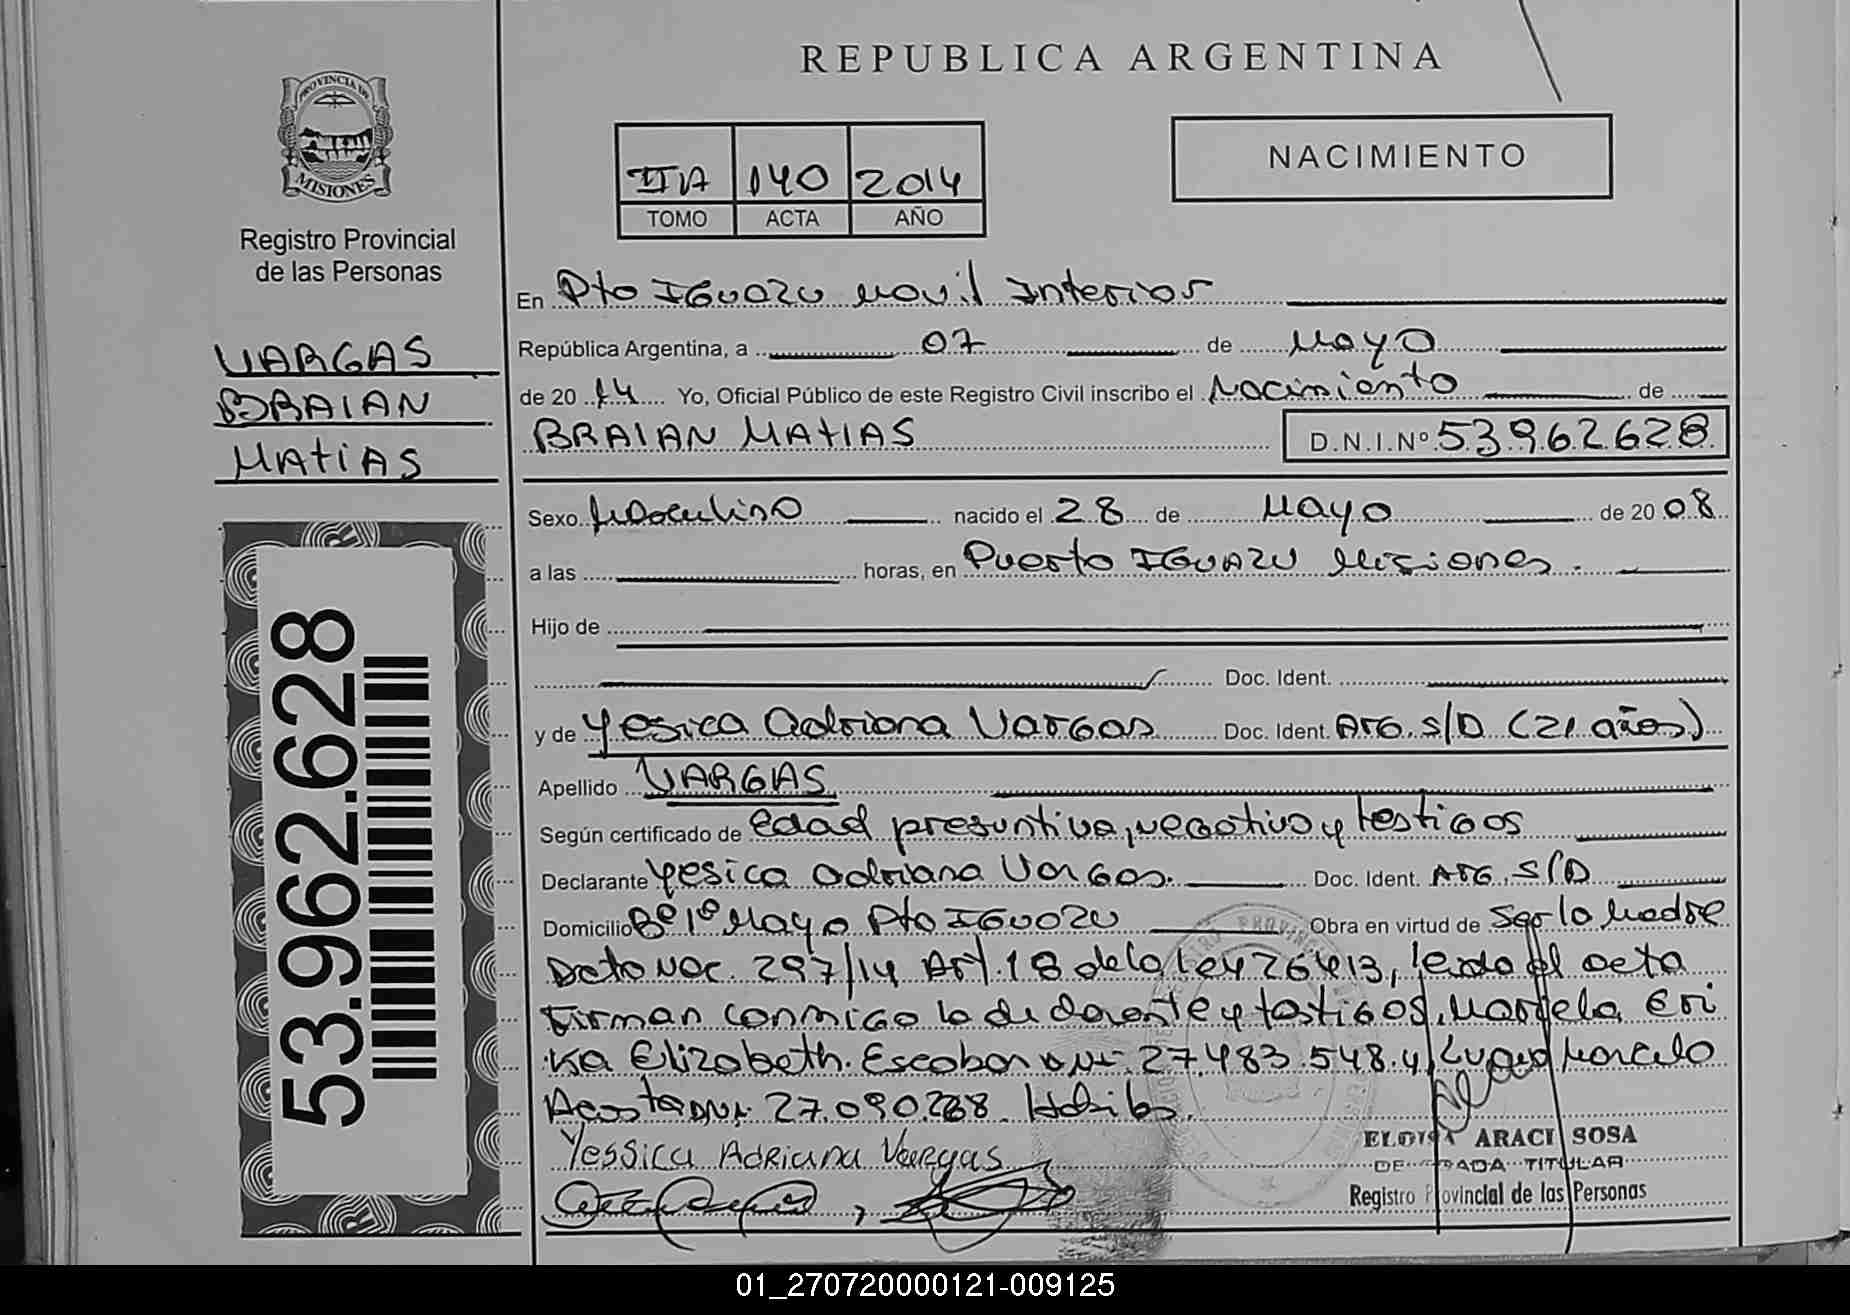 PROVINCIA DE
MISIONES
Registro Provincial
de las Personas
VARGAS
BRAIAN
MATIAS
53.962.628
REPUBLICA ARGENTINA
IIA 140 2014
TOMO ACTA AÑO
NACIMIENTO
En Pto IGUAZU Movil Interior
República Argentina, a 07 de Mayo
de 2014 Yo, Oficial Público de este Registro Civil inscribo el Nacimiento de
BRAIAN MATIAS D.N.I.Nº 53962628
Sexo Masculino nacido el 28 de Mayo de 2008
a las horas, en Puerto IGUAZU Misiones.
Hijo de
Doc. Ident.
y de Yesica Adriana Vargas Doc. Ident. ARG. S/D (21 años)
Apellido VARGAS
Según certificado de edad presuntiva, negativo y testigos
Declarante Yesica Adriana Vargas. Doc. Ident. ARG. S/D
Domicilio Bº 1º Mayo Pto IGUAZU Obra en virtud de Ser la Madre
Dcto Nac. 297/14 Art. 18 de la ley 26413, leida el acta
Firman conmigo la declarante y testigos, Marcela Eri
ka Elizabeth Escobar DNI 27.483.548 y Marcelo
Acosta DNI 27.090.268
Yessica Adriana Vargas
ELOISA ARACI SOSA
DELEGADA TITULAR
Registro Provincial de las Personas
01_270720000121-009125